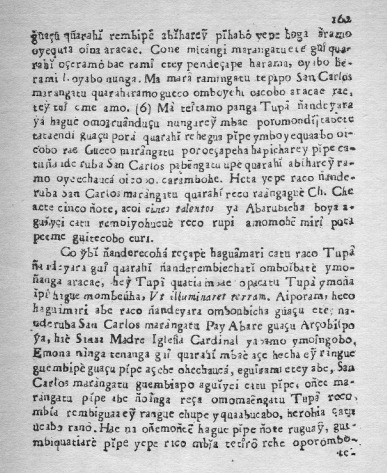 162
g̃uaçũ quarahĩ rembipẽ abĩhareỹ pĩhabò yepe boga ãramo
oyequta oina aracae. Cone mitangi marangatu eté guĩ qua-
rahĩ oçeramõ bae ramĩ etey pendeçape harama, oyibo be-
rami l oyabo nunga. Ma marã ramingatu tepipo San Carlos
marangatu quarahiramo gueco omboychi oicobo aracae rae,
tey tuĩ cme amo. (6) Mà teĩtamo panga Tupã ñandeyara
yà hague omoaruãnduçu nungareỹ mbae poromondĩitabete
tataendi guaçu porà quarahĩ rehegua pĩpe ymboyequaabo oi-
cobo rae Gueco marãngatu poroeçapeha hapichareỹ pĩpe
tuña ide ruba San Carlos pabẽngatu upe quarahĩ abĩhareỹ ra-
mo oyeechauca oicobo, carambohe. Heta yepe raco ñande-
ruba San Carlos marãngatu quarahi reco raãngaguè Ch. Che
aete cinco ñote, acoi cinco talentos ya Abarubicha boya a-
guĩyeí catu remboiyohucuè reco rupi amomohẽ mirĩ pota
peeme guitecobo curi.
Co ỹbĩ ñanderecohá reçapè haguãmari catu raco Tupã
ñandeyara guĩ quarahĩ ñanderembiechatĩ omboĩbatè ymo-
ñanga aracae, heỹ Tupã quatia mbae opacatu Tupã ymoña
ĩpĩ hague mombeúha; Vt illuminaret terram. Aiporami heco
haguimari abe raco ñandeyara ombonbicha guaçu ete, ña-
nderuba San Carlos marãngatu Pay Abare guaçu Arçobispo
ya, hiè Santa Madre Iglesia Cardinal yaramo ymoingobo,
Emona ninga tenanga guĩ quarahĩ mbaè açe hecha eỹ ringue
guembipè guaçu pĩpe açebe ohechaucá, eguirami etey abe, San
Carlos marãngatu guembiapo aguĩyei catu pĩpe, oñee ma-
rangatu pĩpe ibe ñoĩnga reça omomaẽngatu Tupã reco,
mbia rembiguaa eỹ rangue chupe yquaabucabo, herobia çatu
ucabo ranò. Hae na oñemoñee hague pĩpe ñote ruguaỹ, gue-
mbiquatiarè pĩpe yepe rico mbia tetirõ rehe oporombo-